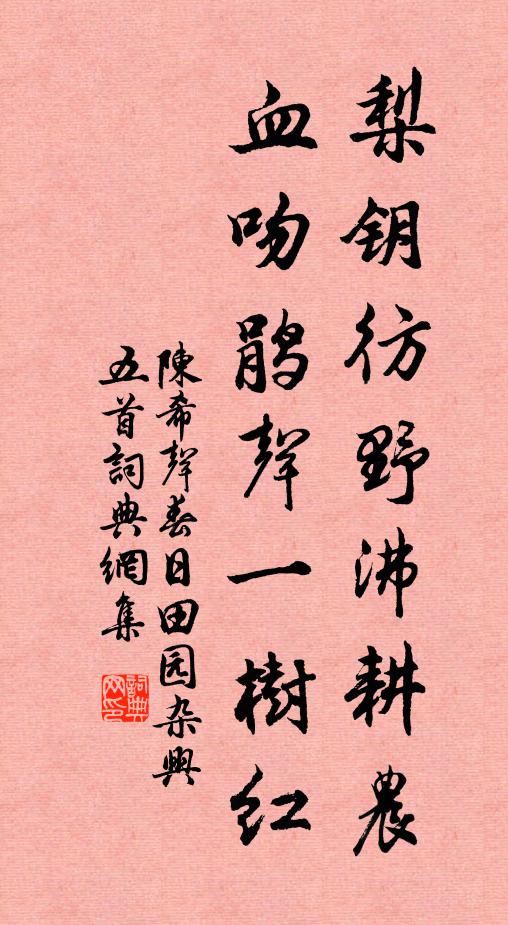 梨钥彷野沸耕農
血吻鹃聲一樹红
陳希聲春日田园杂興
五首詞典網集
詞典网印